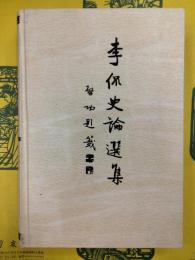 李侃史論選集
啓功題籤
友